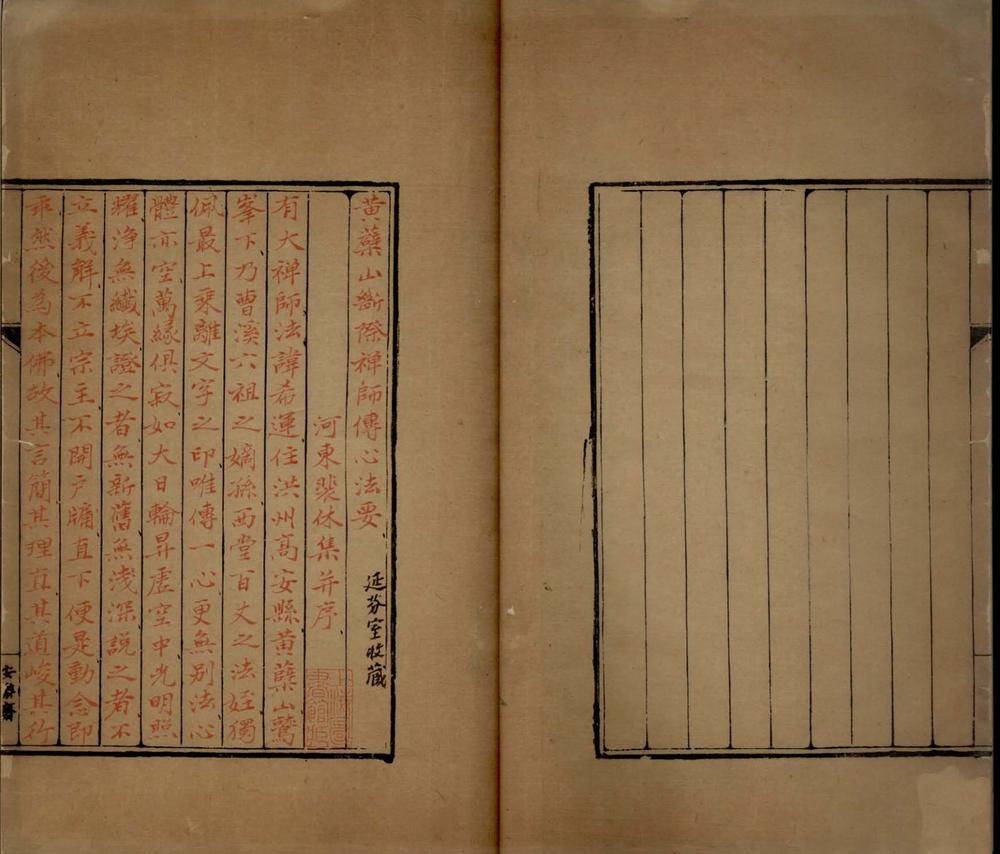 黃蘗山斷際禪師傳心法要
延芬室收藏
河東裴休集并序
有大禪師法諱希運住洪州高安縣黃蘗山鷲
峯下乃曹溪六祖之嫡孫西堂百丈之法姪獨
佩最上乘離文字之印唯傳一心更無別法心
體亦空萬緣俱寂如大日輪昇虛空中光明照
耀淨無纖埃證之者無新舊無淺深說之者不
立義解不立宗主不開戶牖直下便是動念即
乖然後為本佛故其言簡其理直其道峻其行